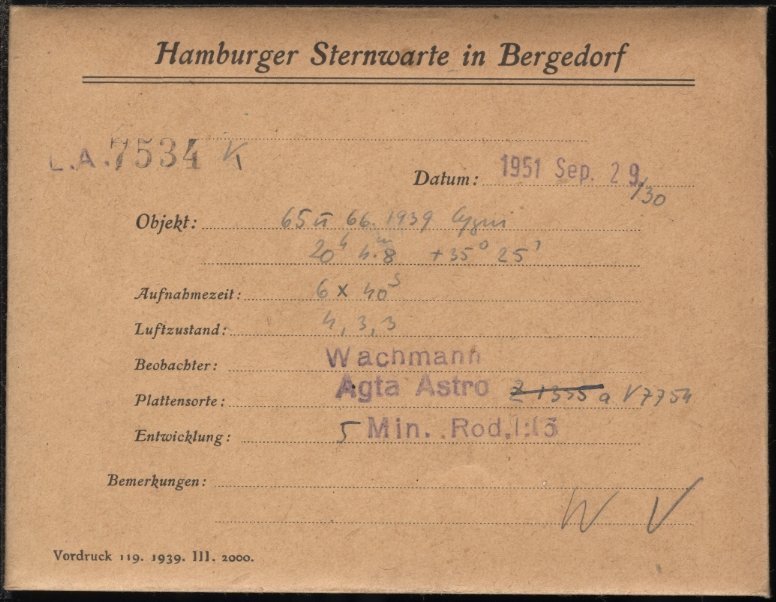 Hamburger Sternwarte in Bergedorf
L.A. 7534 K
Datum: 1951 Sep. 29/30
Objekt: 65 u 66. 1939 Cygni
20h 4m.8 +35° 25'
Aufnahmezeit: 6 x 40s
Luftzustand: 4, 3, 3
Beobachter: Wachmann
Plattensorte: Agfa Astro V7754
Entwicklung: 5 Min. Rod. 1:13
Bemerkungen:
W V
Vordruck 119. 1939. III. 2000.